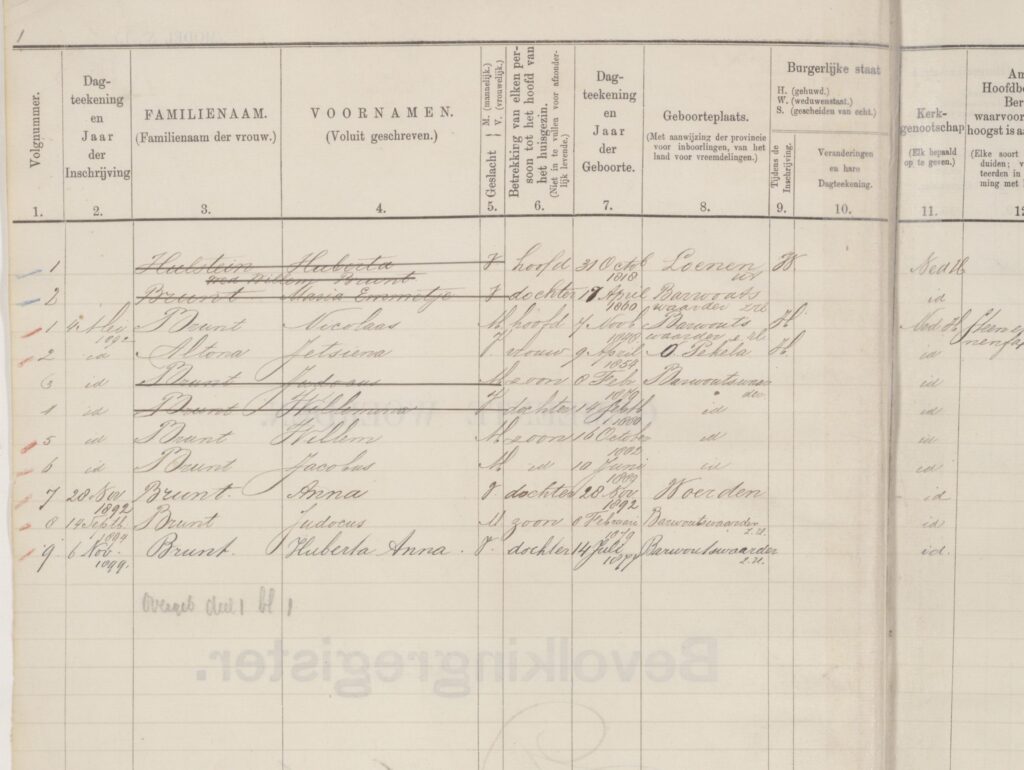 1
Volgnummer.
1.
Dag-
teekening
en
Jaar
der
Inschrijving
2.
FAMILIENAAM.
(Familienaam der vrouw.)
3.
VOORNAMEN.
(Voluit geschreven.)
4.
Geslacht { M. (mannelijk.) V. (vrouwelijk.)
5.
Betrekking van elken per-
soon tot het hoofd van
het huisgezin.
(Niet in te vullen voor afzonder-
lijk levende.)
6.
Dag-
teekening
en
Jaar
der
Geboorte.
7.
Geboorteplaats.
(Met aanwijzing der provincie
voor inboorlingen, van het
land voor vreemdelingen.)
8.
Burgerlijke staat
H. (gehuwd.)
W. (weduwenstaat.)
S. (gescheiden van echt.)
Tijdens de
Inschrijving.
9.
Veranderingen
en hare
Dagteekening.
10.
Kerk-
genootschap
(Elk bepaald
op te geven.)
11.
Hoofdbe
Ber
waarvoor
hoogst is a
(Elke soort
duiden; v
teerden in
ming met
1 Hulstein Huberta V hoofd 31 Octb Loenen W Ned H
wed Willem Brunt 1818
2 Brunt Maria Emmetje V dochter 17 April Barwouts id
1860 waarder
1 Brunt Nicolaas M hoofd 7 Novb Barwouts H Ned. H.
1892 waarder
2 id Altona Jetsiena V. vrouw 9 April O Pekela H id
1854
3 id Brunt Judocus M zoon 8 Feb Barwoutswaar id
1879 der
4 id Brunt Willemina V dochter 14 id id
1880
5 id Brunt Willem M. zoon 16 October id id
1882
6 id Brunt Jacobus M. id 10 Juni id id
7 28 Nov Brunt. Anna V dochter 28 Nov Woerden id
1892 1892
8 14 Septb Brunt Judocus M zoon 8 Februari Barwoutswaarder id
1879 z.H.
9 6 Nov. Brunt. Huberta Anna. V. dochter 14 Juli Barwoutswaarder id.
1899. 1877 z.H.
deel 1 bl 1
Bevolkingregister.